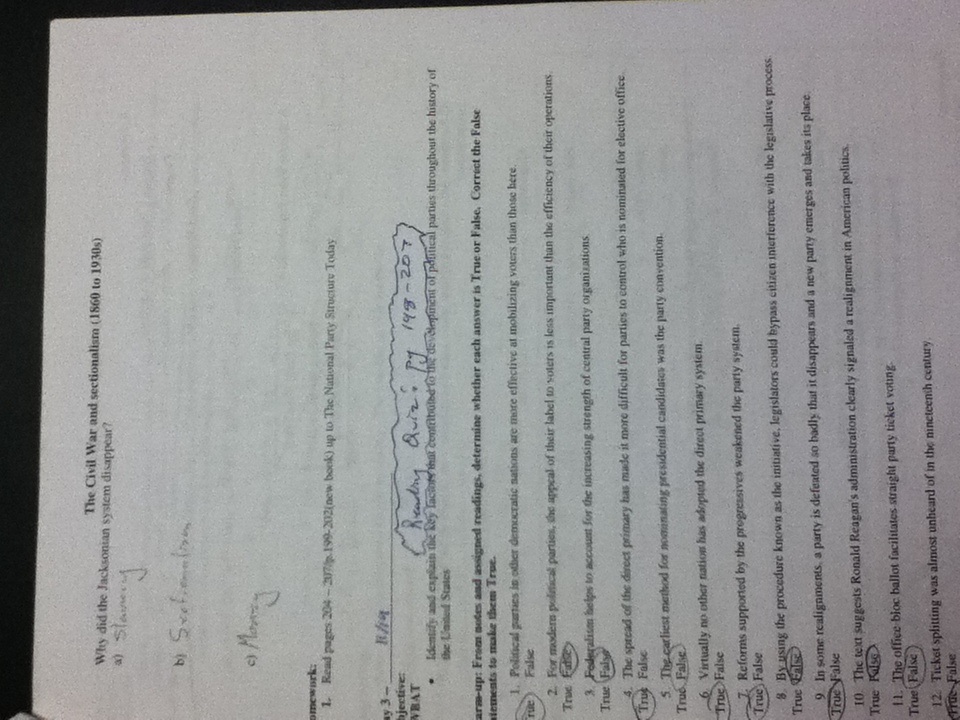 The Civil War and sectionalism (1860 to 1930s)
Why did the Jacksonian system disappear?
a) Slavery
b) Sectionalism
c) Money
omework:
1. Read pages 204 – 207/p.199-202(new book) up to The National Party Structure Today
ay 3 – 11/19
bjective:
WBAT
Reading Quiz: pg 198-207
• Identify and explain the key factors that contributed to the development of political parties throughout the history of
the United States
arm-up: From notes and assigned readings, determine whether each answer is True or False. Correct the False
atements to make them True.
1. Political parties in other democratic nations are more effective at mobilizing voters than those here.
rue False
2. For modern political parties, the appeal of their label to voters is less important than the efficiency of their operations.
True False
3. Federalism helps to account for the increasing strength of central party organizations.
True False
4. The spread of the direct primary has made it more difficult for parties to control who is nominated for elective office.
True False
5. The earliest method for nominating presidential candidates was the party convention.
True False
6. Virtually no other nation has adopted the direct primary system.
True False
7. Reforms supported by the progressives weakened the party system.
True False
8. By using the procedure known as the initiative, legislators could bypass citizen interference with the legislative process.
True False
9. In some realignments, a party is defeated so badly that it disappears and a new party emerges and takes its place.
True False
10. The text suggests Ronald Reagan's administration clearly signaled a realignment in American politics.
True False
11. The office-bloc ballot facilitates straight party ticket voting.
True False
12. Ticket splitting was almost unheard of in the nineteenth century.
True False